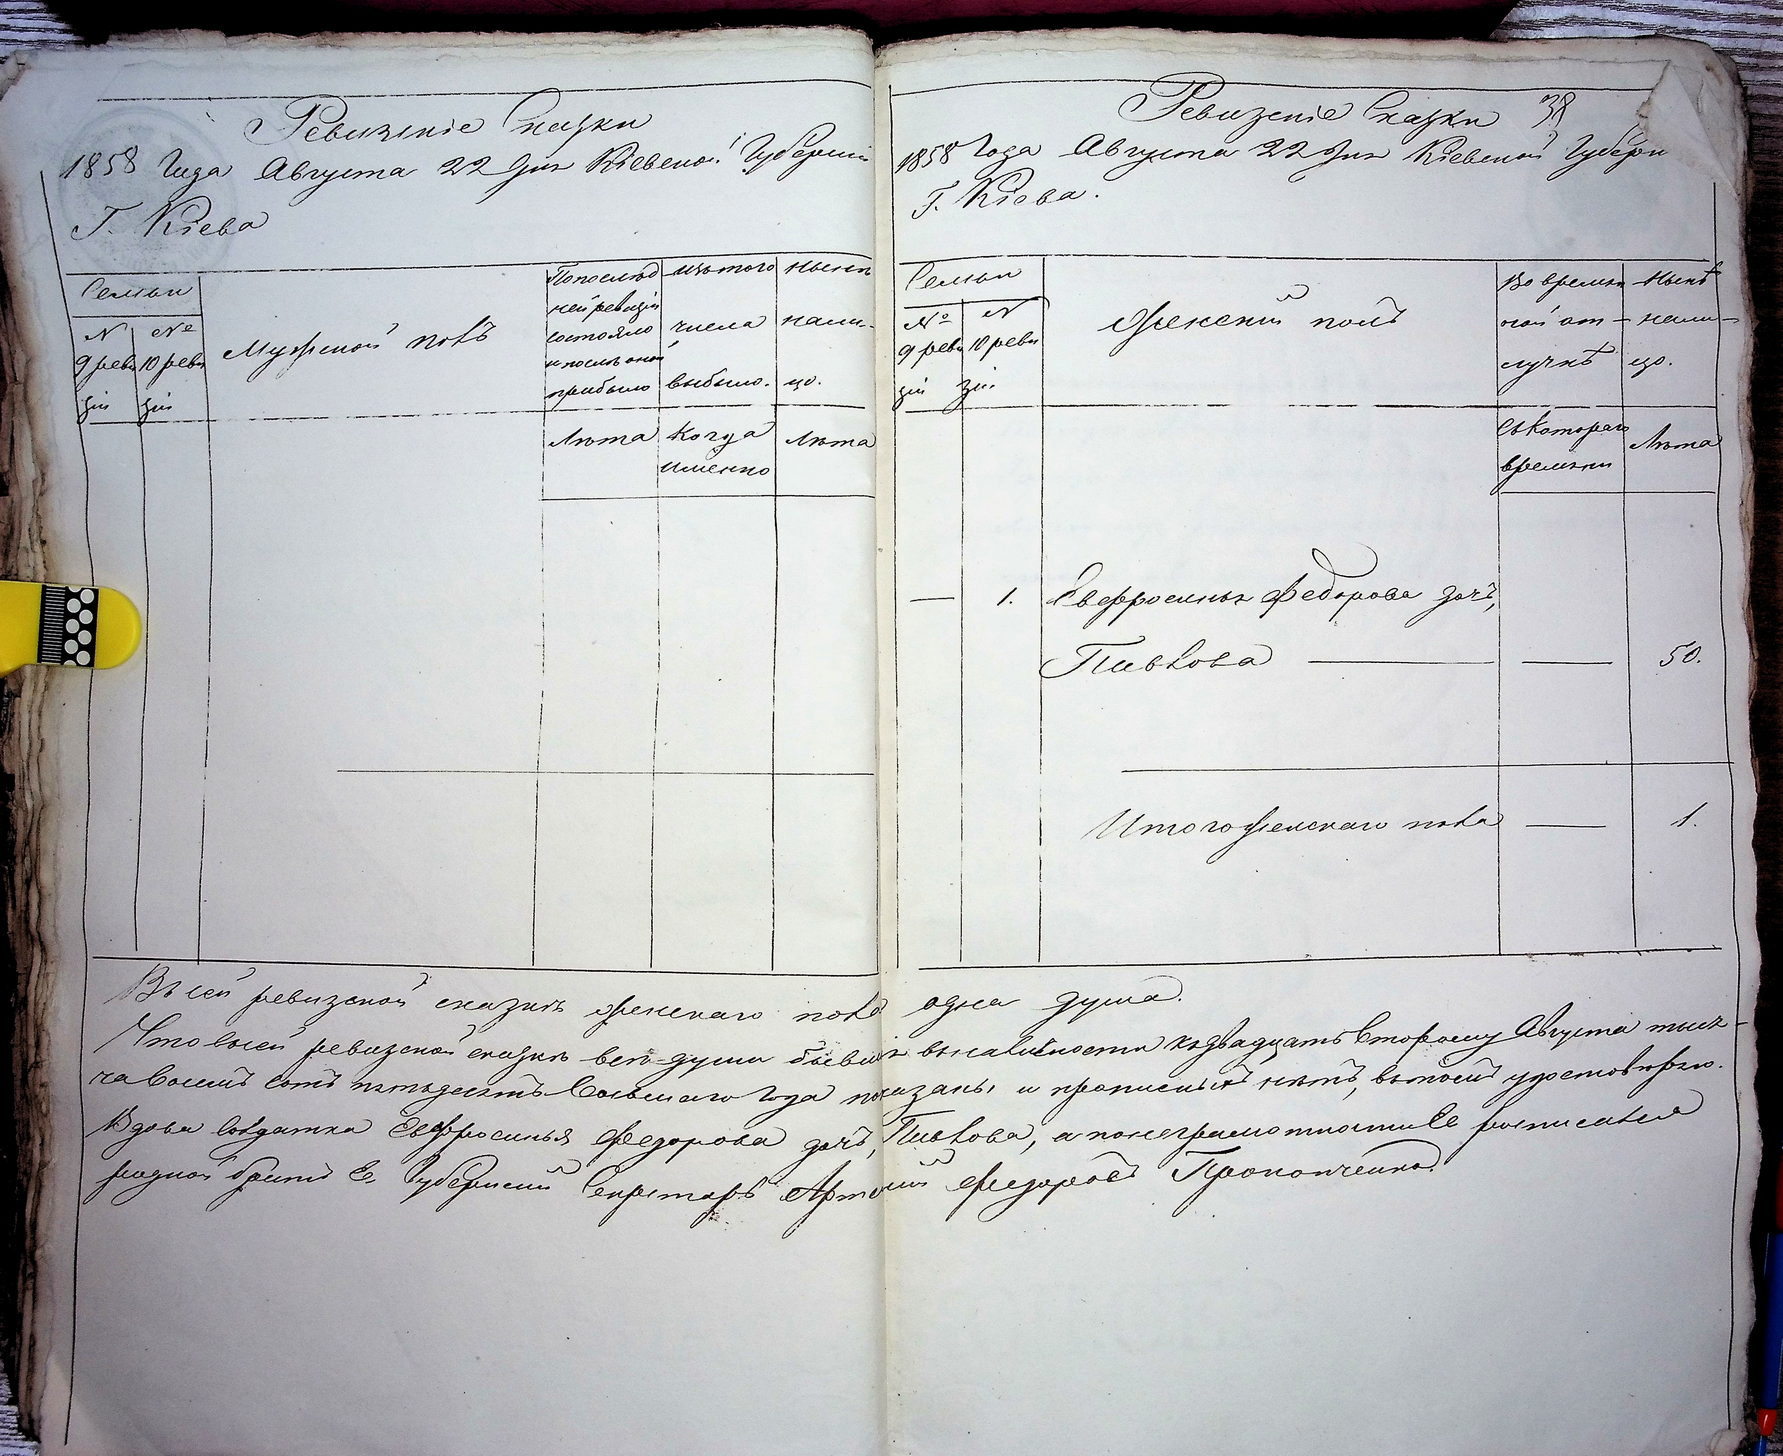 Ревизскіе Сказки
1858 Года Августа 22 дня Кіевской Губерніи
Г. Кіева
Семьи
№ 9 ревизіи
№ 10 ревизіи
Мужской полъ
По послѣдней ревизіи состояло и послѣ оной прибыло
изъ того числа выбыло.
нынѣ на лицо.
Лѣта
Когда именно
Лѣта
Ревизскіе Сказки
38
1858 Года Августа 22 дня Кіевской Губерн
Г. Кіева.
Семьи
№ 9 ревизіи
№ 10 ревизіи
Женскій полъ
Во временной отлучкѣ
Нынѣ на лицо.
Съ котораго времени
Лѣта
— 1. Евфросинья Федорова дочь,
Пивкова — — 50.
Итого женскаго пола — 1.
Въ сей ревизской сказкѣ женскаго пола одна душа.
Что въ сей ревизской сказкѣ всѣ души бывшія въ наличности къ двадцать второму Августа тысяча восемь сотъ пятьдесятъ Восьмаго Года показаны и прописныхъ нѣтъ, въ томъ удостовѣряю.
Вдова солдатка Евфросинья Федорова дочь, Пивкова, а по неграмотности Ее росписался
родной братъ Ея Губернскій Секретарь Артемій Федоровъ Прокопченко.